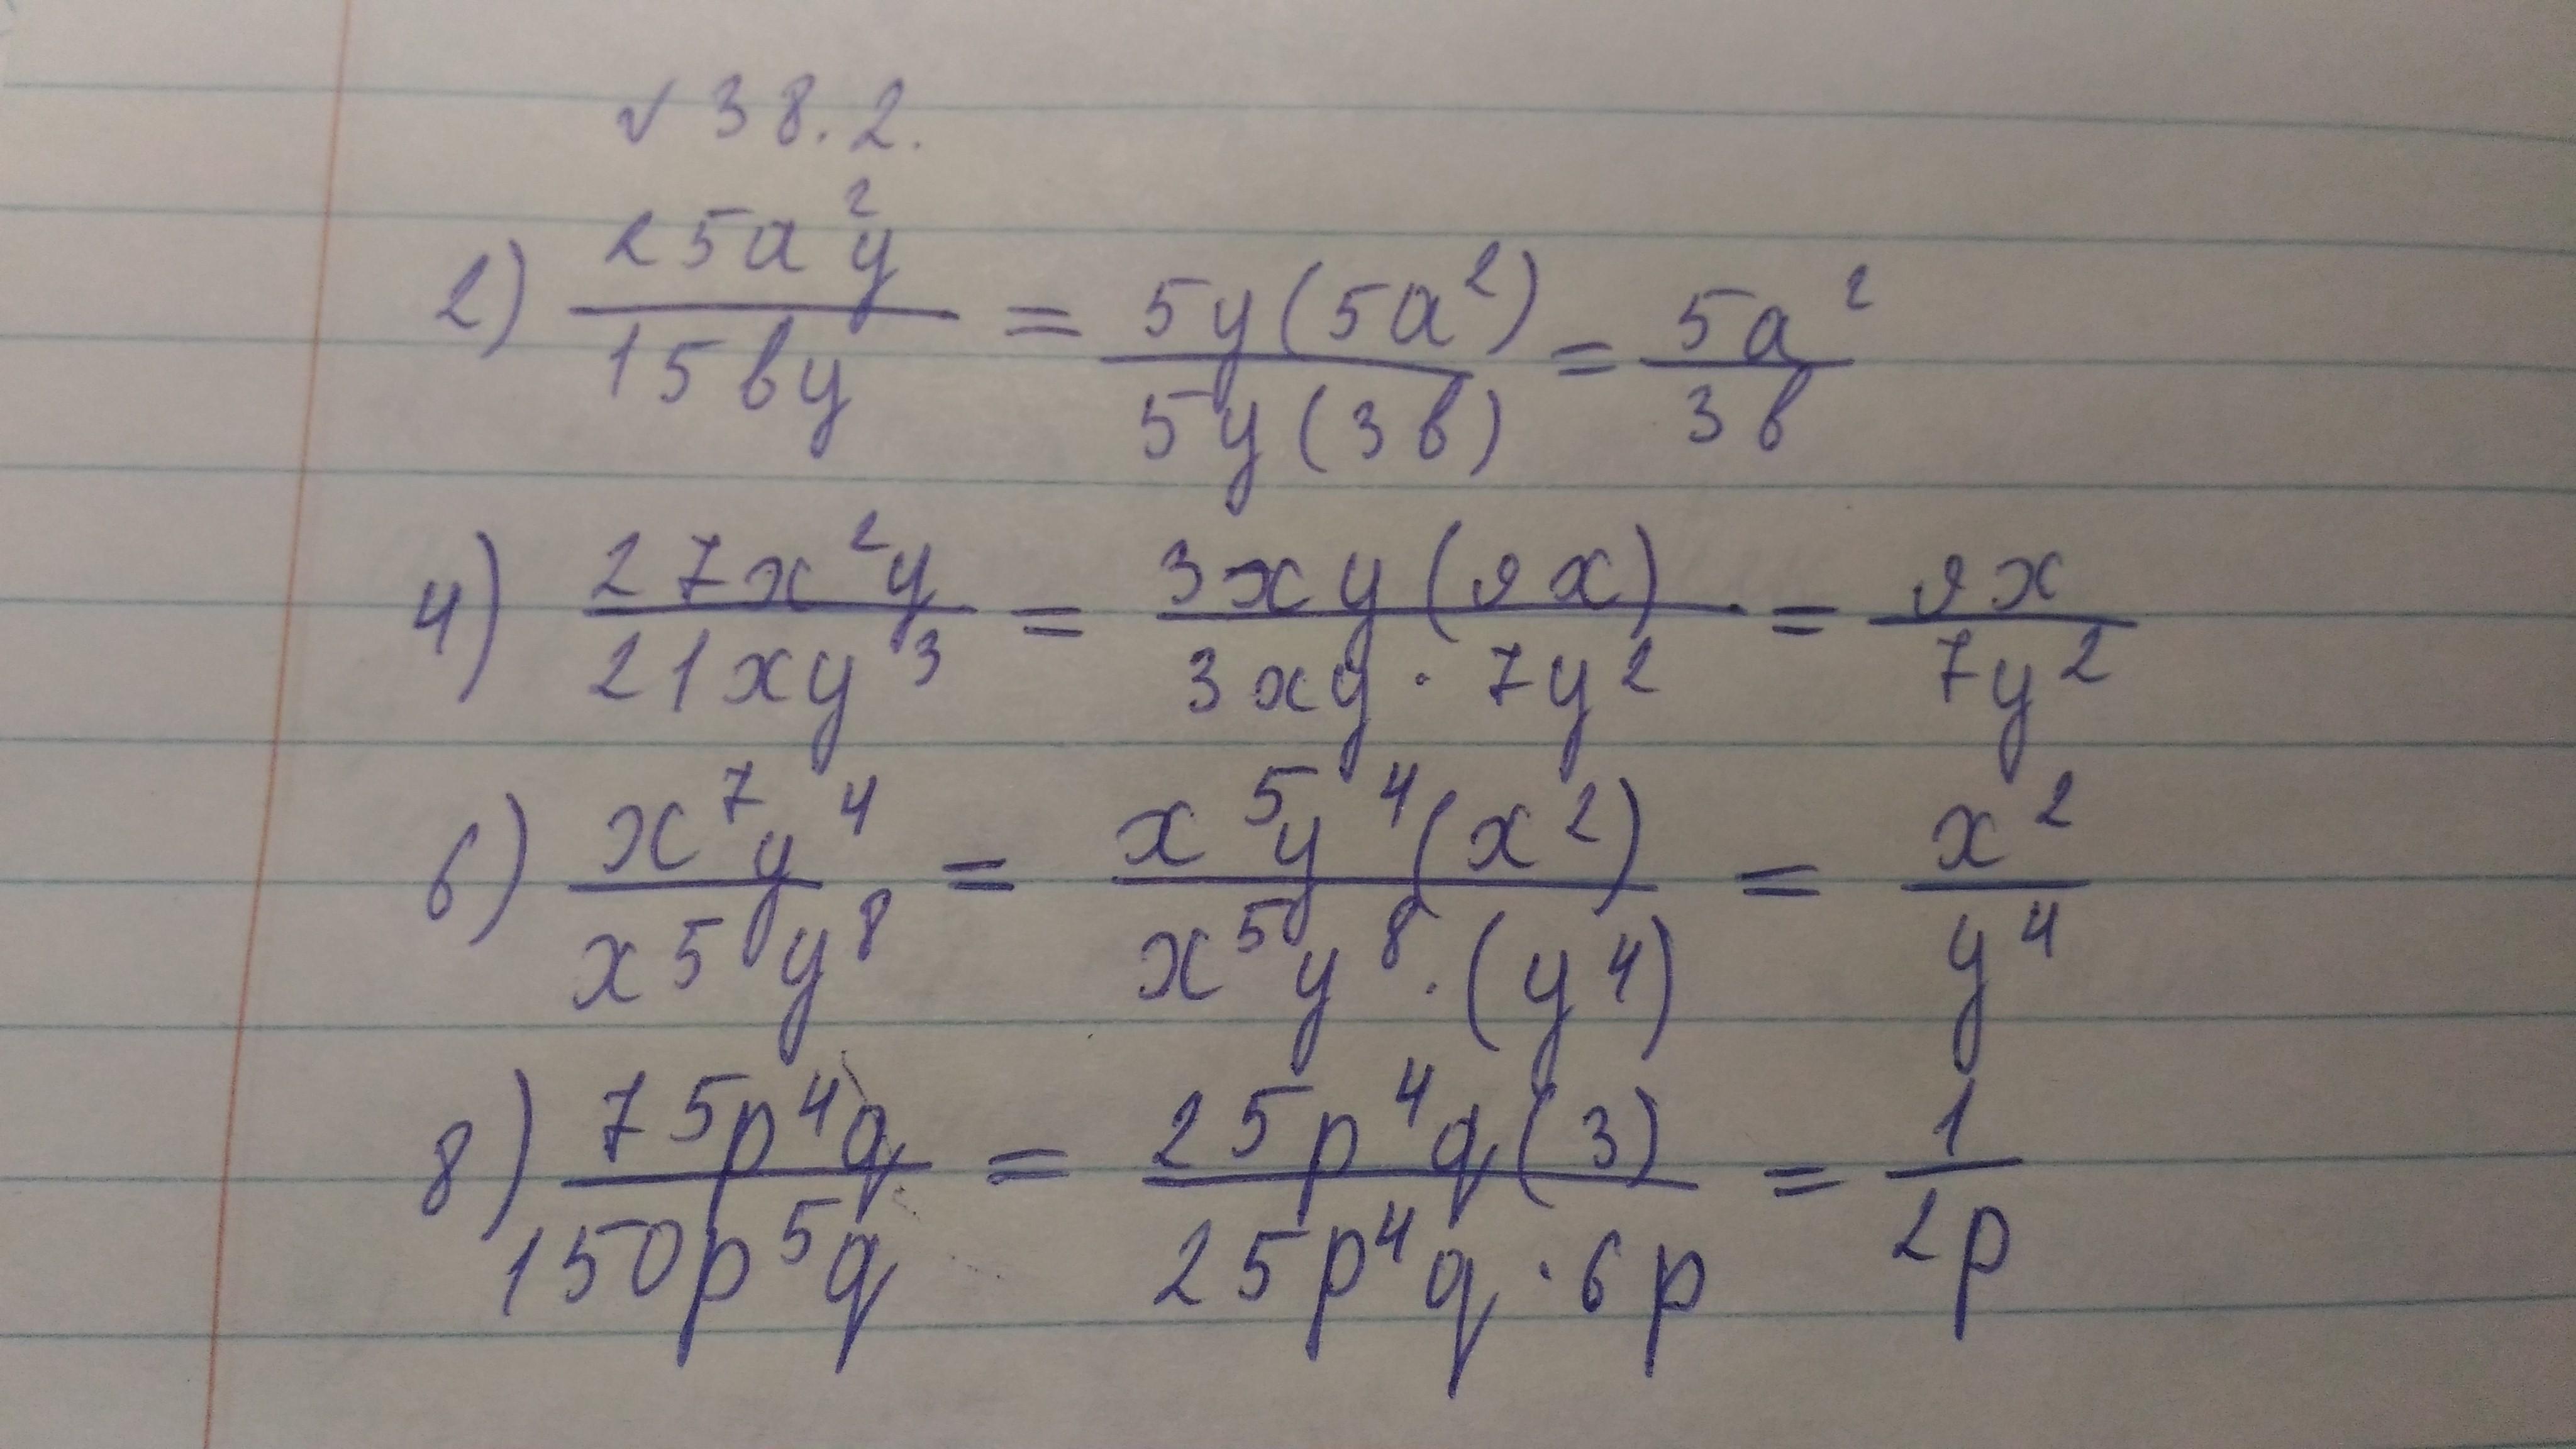 √ 38.2.
2) 25a²y/15вy = 5y(5a²)/5y(3в) = 5a²/3в
4) 27x²y/21xy³ = 3xy(9x)/3xy·7y² = 9x/7y²
6) x⁷y⁴/x5y⁸ = x⁵y⁴(x²)/x⁵y⁸·(y⁴) = x²/y⁴
8) 75p⁴q/150p⁵q = 25p⁴q(3)/25p⁴q·6p = 1/2p